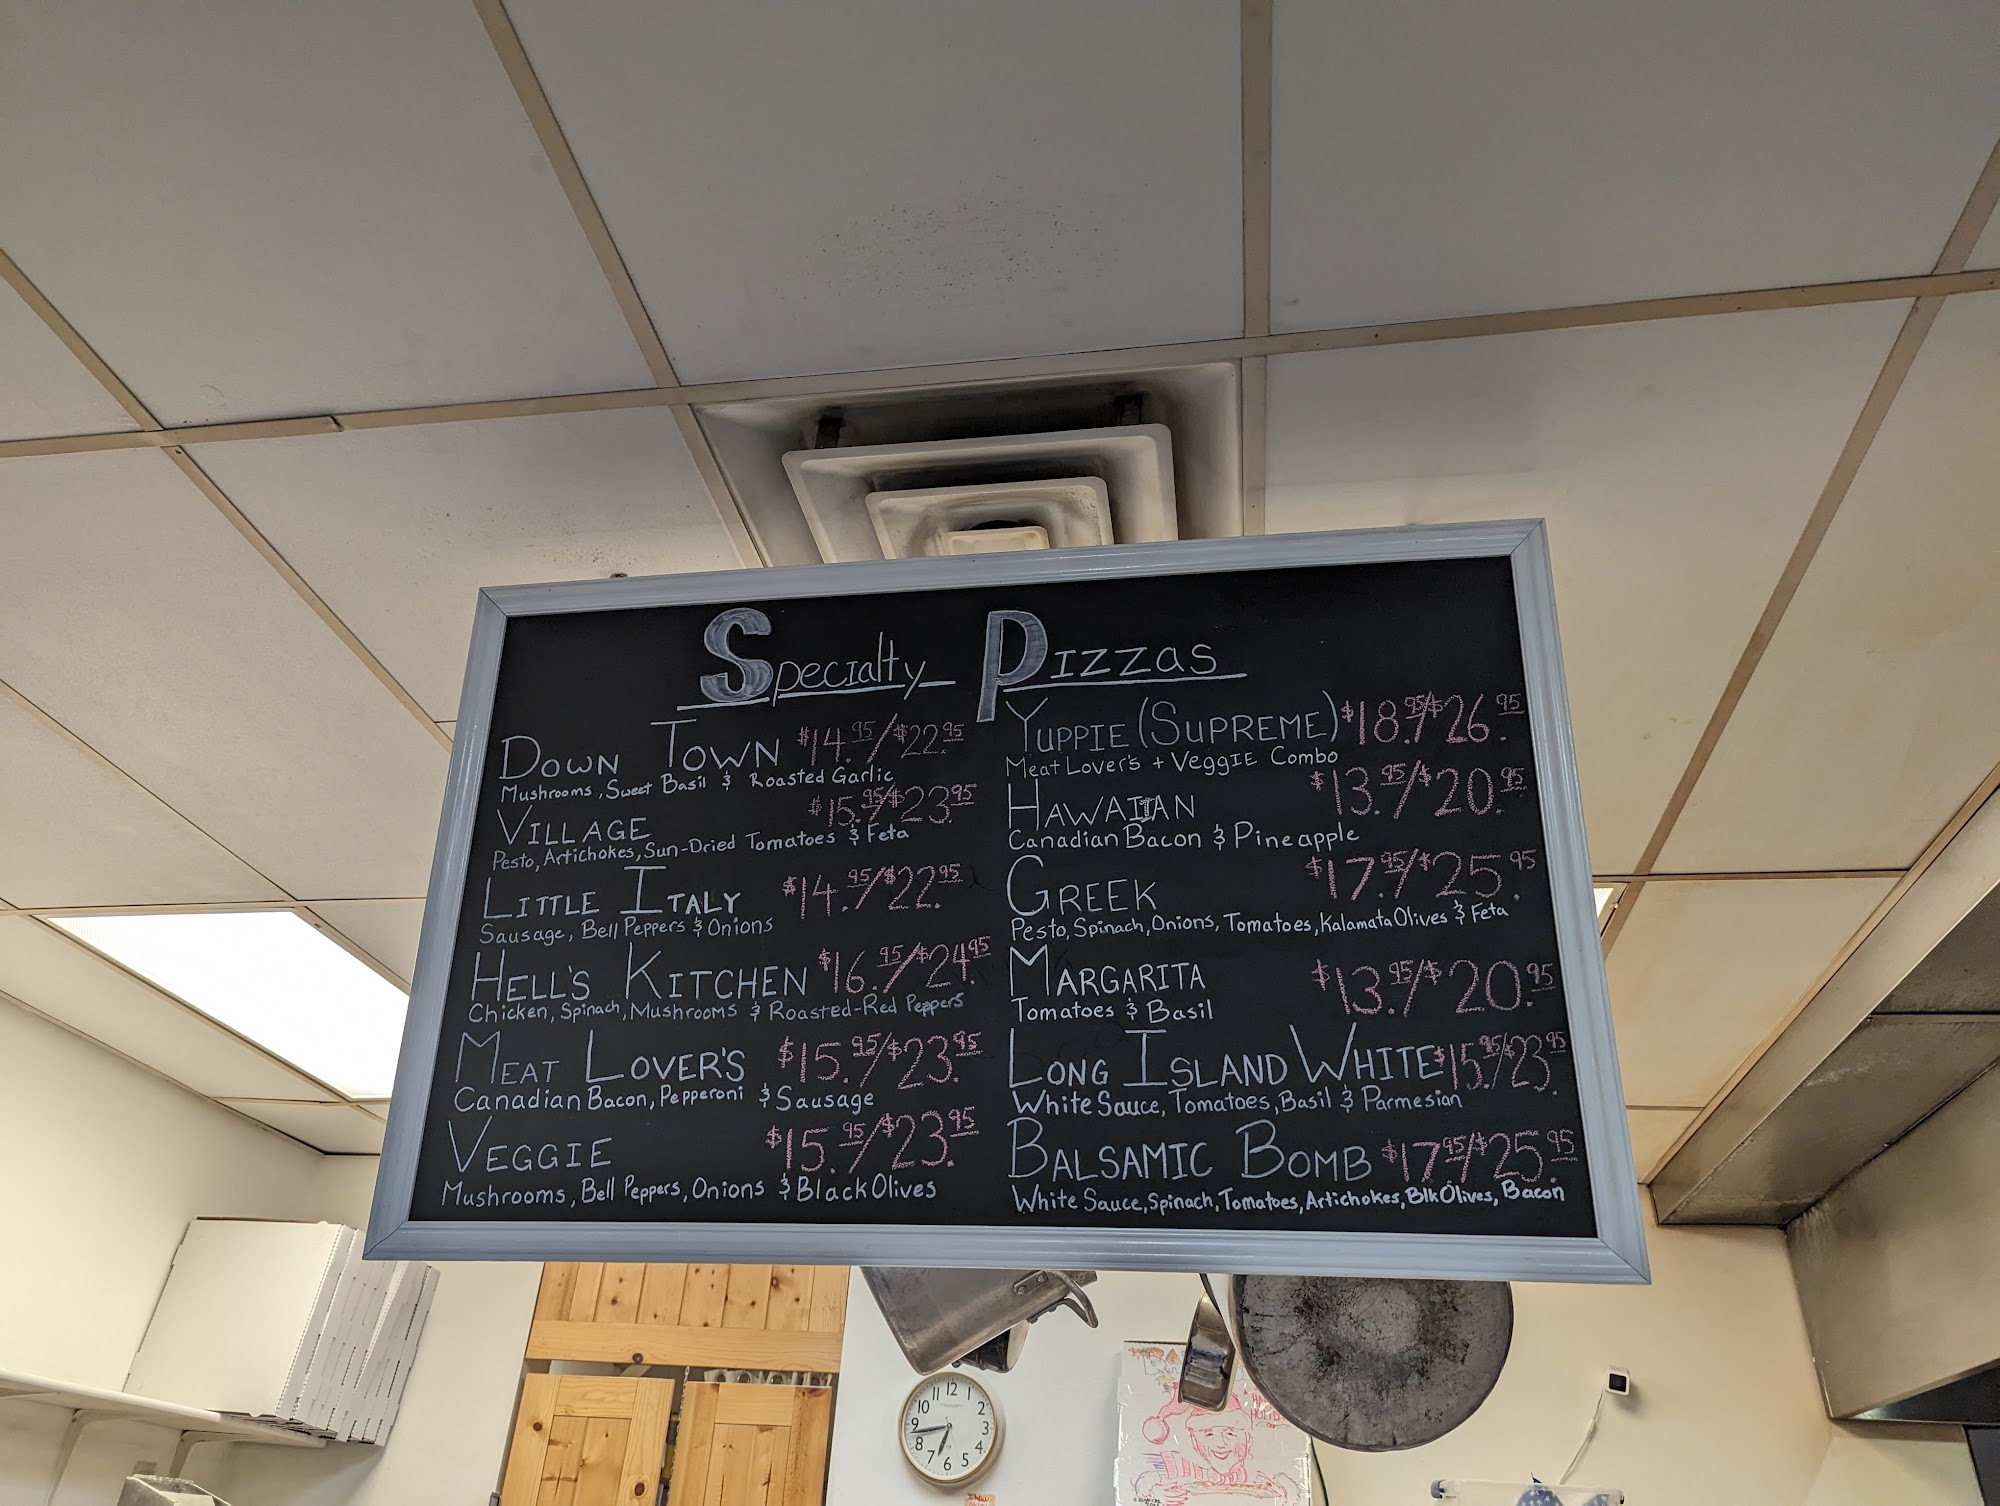 Specialty Pizzas
Down Town $14.95/$22.95
Mushrooms, Sweet Basil & Roasted Garlic
Village $15.95/$23.95
Pesto, Artichokes, Sun-Dried Tomatoes & Feta
Little Italy $14.95/$22.95
Sausage, Bell Peppers & Onions
Hell's Kitchen $16.95/$24.95
Chicken, Spinach, Mushrooms & Roasted-Red Peppers
Meat Lover's $15.95/$23.95
Canadian Bacon, Pepperoni & Sausage
Veggie $15.95/$23.95
Mushrooms, Bell Peppers, Onions & Black Olives
Yuppie (Supreme) $18.95/$26.95
Meat Lover's + Veggie Combo
Hawaiian $13.95/$20.95
Canadian Bacon & Pineapple
Greek $17.95/$25.95
Pesto, Spinach, Onions, Tomatoes, Kalamata Olives & Feta
Margarita $13.95/$20.95
Tomatoes & Basil
Long Island White $15.95/$23.95
White Sauce, Tomatoes, Basil & Parmesian
Balsamic Bomb $17.95/$25.95
White Sauce, Spinach, Tomatoes, Artichokes, Blk Olives, Bacon
12
1
2
3
4
5
6
7
8
9
10
11